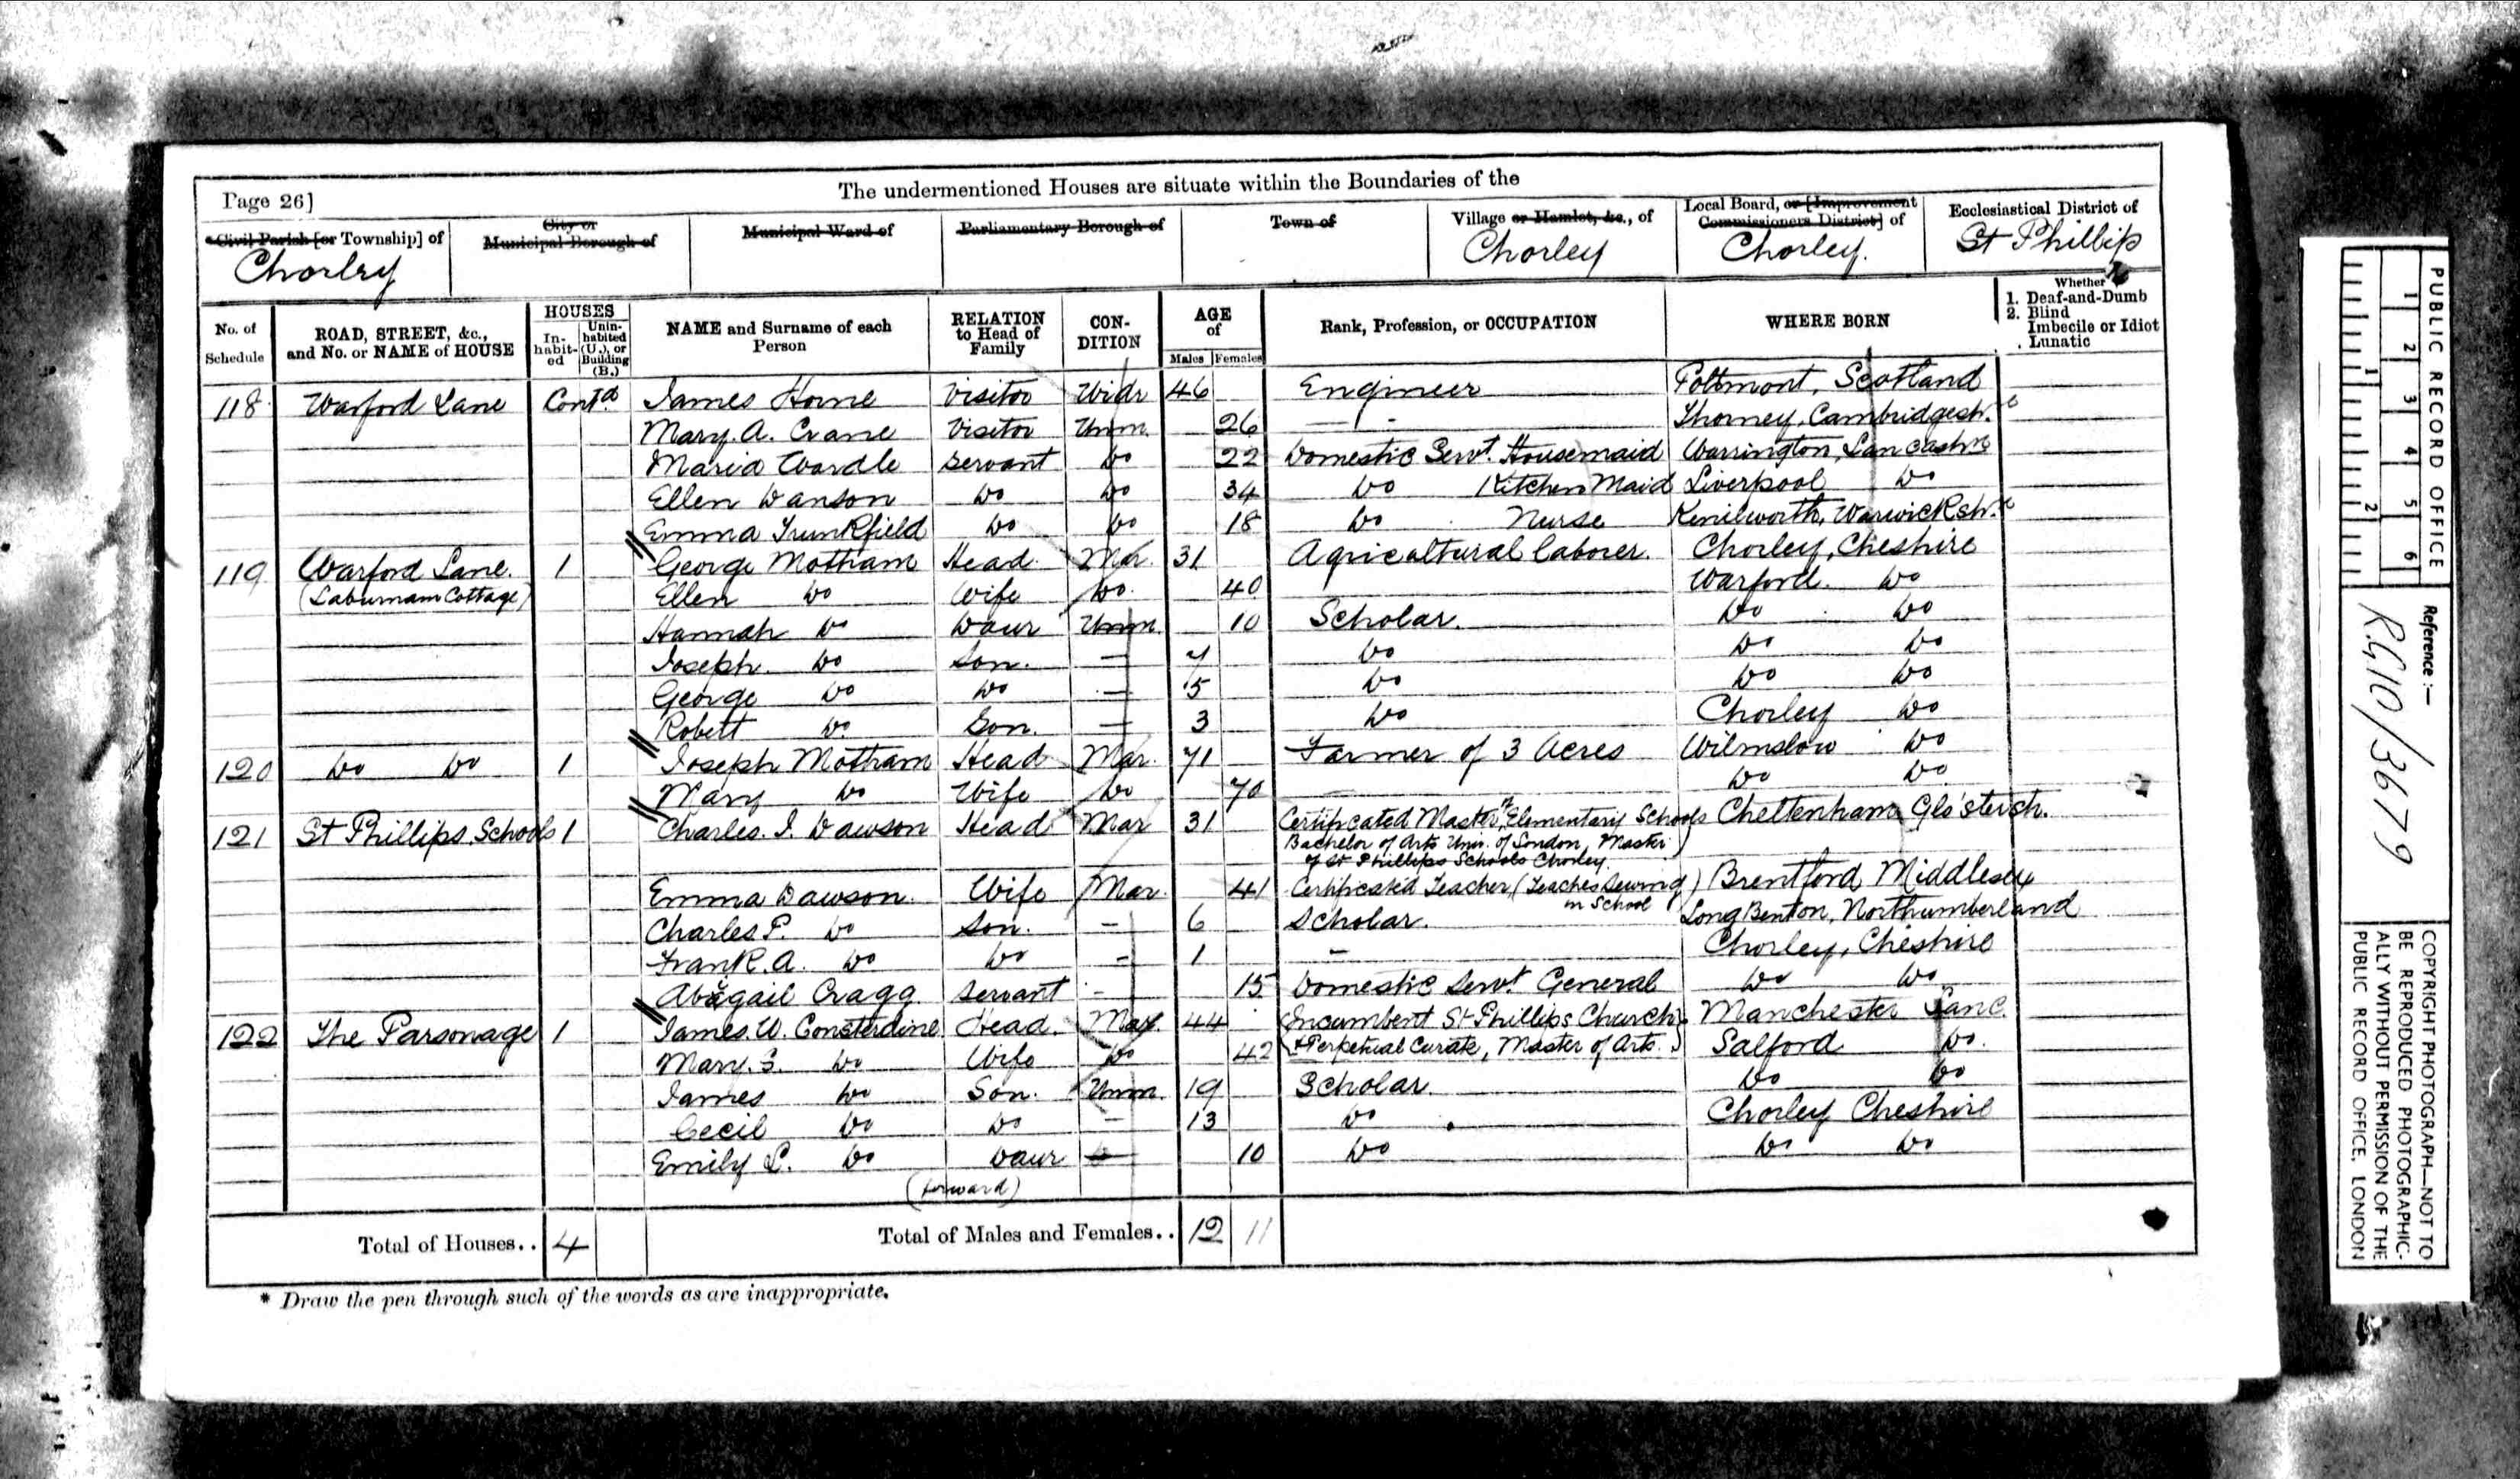 The undermentioned Houses are situate within the Boundaries of the
Page 26]
*Civil Parish [or Township] of
Chorley
City or Municipal Borough of
Municipal Ward of
Parliamentary Borough of
Town of
Village or Hamlet, &c., of
Chorley
Local Board, or [Improvement Commissioners District] of
Chorley.
Ecclesiastical District of
St Phillip
No. of Schedule
ROAD, STREET, &c., and No. or NAME of HOUSE
HOUSES
In-habit-ed
Unin-habited (U.), or Building (B.)
NAME and Surname of each Person
RELATION to Head of Family
CON-DITION
AGE of
Males Females
Rank, Profession, or OCCUPATION
WHERE BORN
Whether
1. Deaf-and-Dumb
2. Blind
Imbecile or Idiot
Lunatic
118 Warford Lane Contd James Horne Visitor Widr 46 Engineer Scotland
Mary. A. Crane Visitor Unm. 26 — Thorney, Cambridgesh.e
Maria Wardle Servant Do 22 Domestic Servt. Housemaid Warrington, Lancashre
Ellen Danson Do Do 34 Do Kitchen Maid Liverpool Do
Emma Trunkfield Do Do 18 Do Nurse Kenilworth, Warwicksh.e
119 Warford Lane. 1 George Mottram Head Mar. 31 Agricultural laborer. Chorley, Cheshire
(Laburnam Cottage) Ellen Do Wife Do. 40 Warford. Do
Hannah Do Daur Unm. 10 Scholar. Do Do
Joseph. Do Son. — 7 Do Do Do
George Do Do — 5 Do Do Do
Robert Do Son. — 3 Do Chorley Do
120 Do Do 1 Joseph Mottram Head Mar. 71 Farmer of 3 Acres Wilmslow Do
Mary Do Wife Do 70 — Do Do
121 St Phillips. Schools 1 Charles. J. Dawson Head Mar 31 Certificated Master, Elementary Schools Cheltenham Glo'stersh.
Bachelor of Arts Univ. of London, Master
of St Phillips Schools Chorley.
Emma Dawson. Wife Mar. 41 Certificated Teacher, (Teaches Sewing in School) Brentford Middlesex
Charles P. Do Son. — 6 Scholar. Long Benton, Northumberland
Frank. A. Do Do - 1 — Chorley, Cheshire
Abigail Cragg. Servant - 15 Domestic Servt. General Do Do
122 The Parsonage 1 James. W. Consterdine Head. Mar. 44 (Incumbent St Phillips Church Manchester Lanc.
Mary. G. Do Wife Do 42 & Perpetual Curate, Master of Arts.) Salford Do.
James Do Son. Unm. 19 Scholar. Do Do
Cecil Do Do — 13 Do Chorley Cheshire
Emily L. Do Daur — 10 Do Do Do
(forward)
Total of Houses.. 4 Total of Males and Females.. 12 11
* Draw the pen through such of the words as are inappropriate.
PUBLIC RECORD OFFICE
1 2 3 4 5 6
1 2
Reference :—
R.G.10/3679
COPYRIGHT PHOTOGRAPH—NOT TO
BE REPRODUCED PHOTOGRAPHIC-
ALLY WITHOUT PERMISSION OF THE
PUBLIC RECORD OFFICE, LONDON